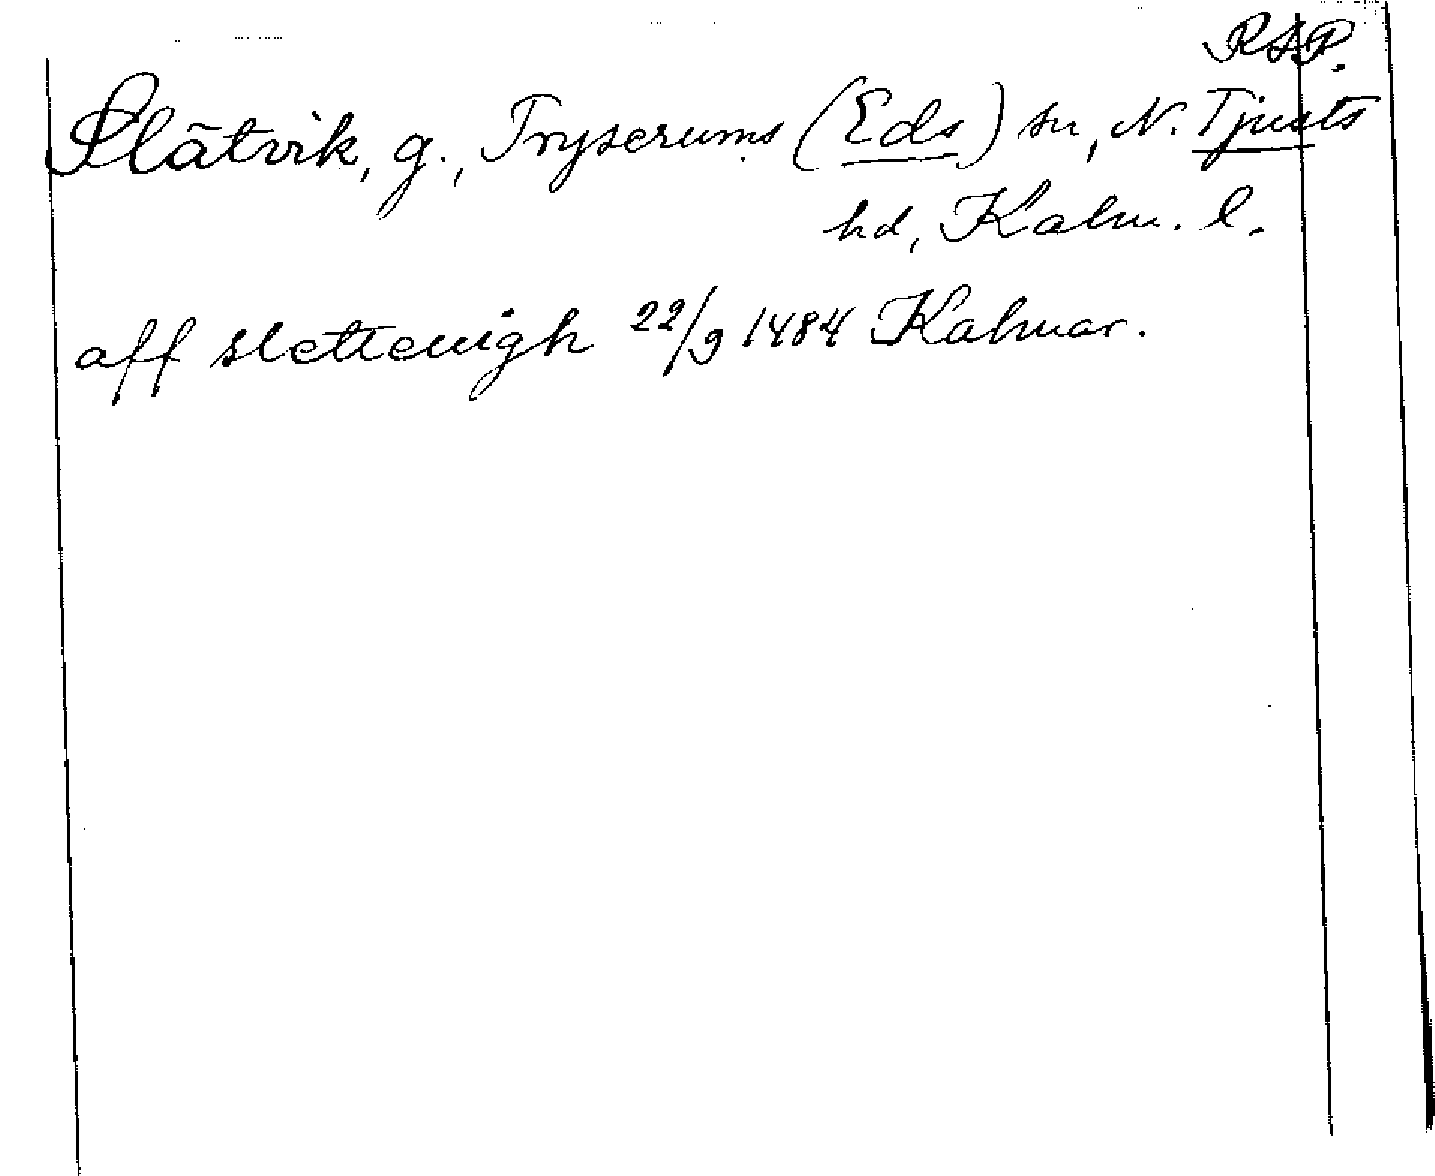 RAP.
Slätvik, g., Tryserums (Eds) sn, N. Tjusts
hd, Kalm. l.
aff slettewigh 22/9 1484 Kalmar.